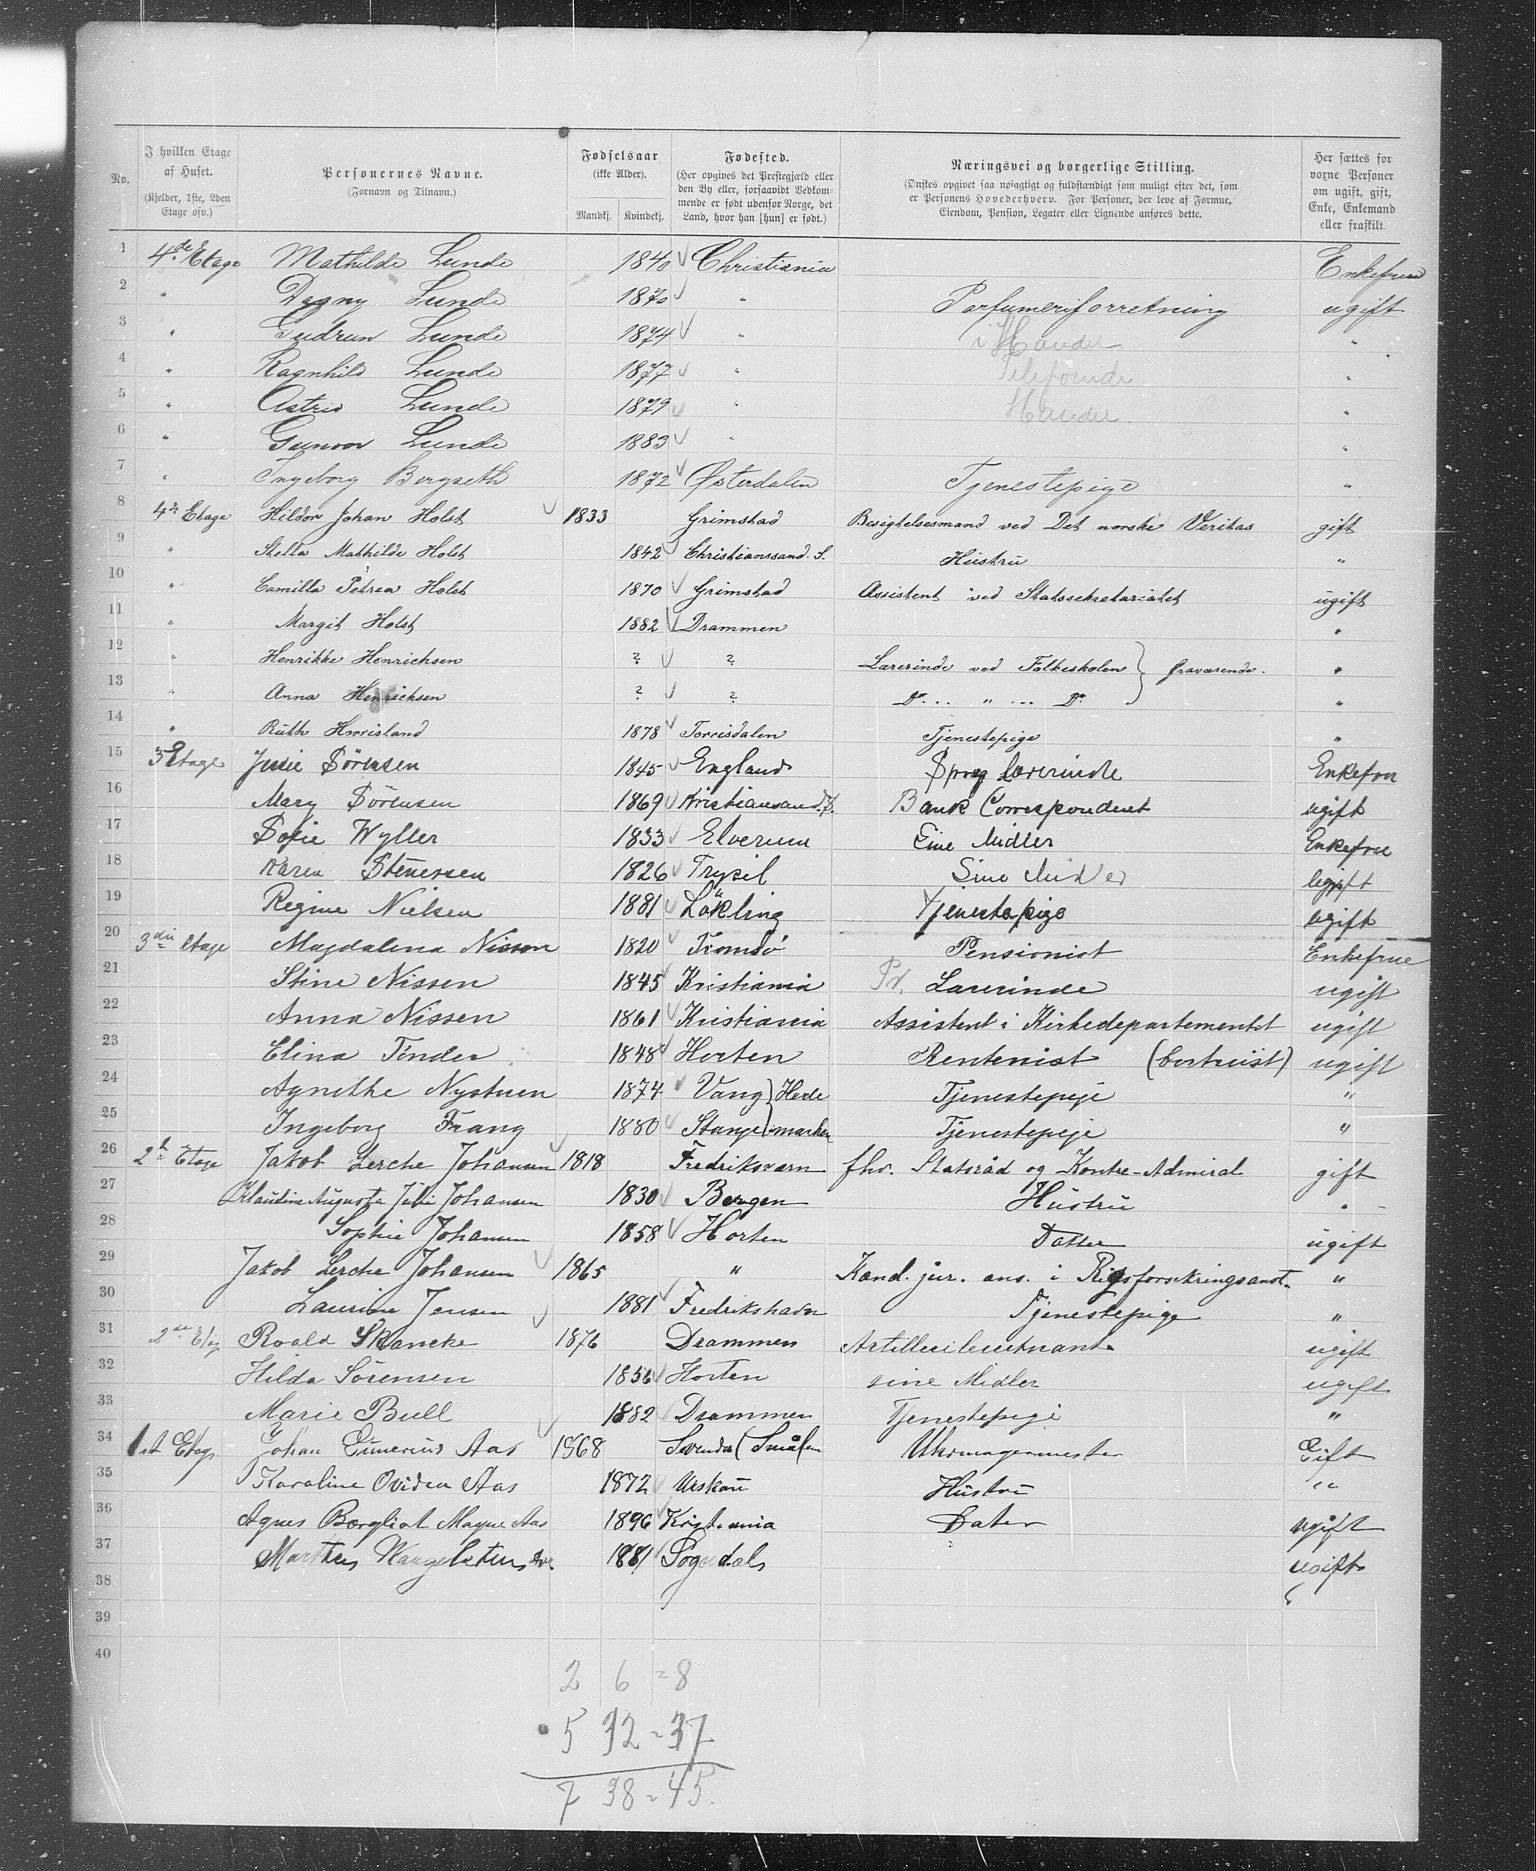 No.
I hvilken Etage af Huset.
(Kjelder, 1ste, 2den Etage osv.)
Personernes Navne.
(Fornavn og Tilnavn.)
Fødselsaar
(ikke Alder).
Mandkj. Kvindekj.
Fødested.
(Her opgives det Prestegjæld eller
den By eller, forsaavidt Vedkom-
mende er født udenfor Norge, det
Land, hvor han [hun] er født.)
Næringsvei og borgerlige Stilling.
(Ønskes opgivet saa nøiagtigt og fuldstændigt som muligt efter det, som
er Personens Hovederhverv. For Personer, der leve af Formue,
Eiendom, Pension, Legater eller Lignende anføres dette.
Her sættes for
vorne Personer
om ugift, gift,
Enke, Enkemand
eller fraskilt.
1 4de Etage Mathilde Lunde 1840 Christiania Enkefrue
2 " Dagny Lunde 1870 " Parfumeriforretning ugift
3 " Gudrun Lunde 1874 " i Handel "
4 " Ragnhild Lunde 1877 " "
5 " Astrid Lunde 1879 " Handel "
6 " Gunvor Lunde 1883 " "
7 " Ingeborg Bergseth 1872 Østerdalen Tjenestepige "
8 4de Etage Hildor Johan Holst 1833 Grimstad Besigtelsesmand ved Det norske Veritas gift
9 " Stella Mathilde Holst 1842 Christianssand. S. Hustru "
10 " Camilla Petrea Holst 1870 Grimstad Assistent ved Statssekretariatet ugift
11 " Margit Holst 1882 Drammen "
12 " Henrikke Henrichsen ? ? Lærerinde ved Folkeskolen } fraværende. "
13 " Anna Henrichsen ? ? Do... " ... Do "
14 " Ruth 1878 Torrisdalen Tjenestepige "
15 3 Etage Jessie Sörensen 1845 England Sprog Lærerinde Enkefrue
16 Mary Sörensen 1869 Kristiansand. S. Bank Correspondent ugift
17 Sofie Wyller 1833 Elverum Eine Midler Enkefrue
18 Karen Stenersen 1826 Trysil Sine Midler ugift
19 Regine Nielsen 1881 Tjenestepige ugift
20 3die Etage Magdalena Nissen 1820 Tromsö Pensionist Enkefrue
21 Stine Nissen 1845 Kristiania Pr. Lærerinde ugift
22 Anna Nissen 1861 Kristiania Assistent i Kirkedepartementet ugift
23 Elina 1848 Horten Rentenist (bortreist) ugift
24 Agnethe Nystuen 1874 Vang } Hede Tjenestepige "
25 Ingeborg Frang 1880 Stange } marken Tjenestepige "
26 2 Etage Jakob Lerche Johansen 1818 Fredriksværn fhv. Statsråd og Kontre-Admiral gift
27 Klaudine Augusta Julie Johansen 1830 Bergen Hustru "
28 Sophie Johansen 1858 Horten Datter ugift
29 Jakob Lerche Johansen 1865 " Kand. jur. ans. i Rigsforsikringsanst. "
30 Laurine Jensen 1881 Fredrikshavn Tjenestepige "
31 2den Etg Roald Skancke 1876 Drammen Artilleriløitnant ugift
32 Hilda Sörensen 1856 Horten sine Midler ugift
33 Marie Bull 1882 Drammen Tjenestepige "
34 1st Etage Johan Aas 1868 Smålen Uhrmagermester Gift
35 Karoline Ovidea Aas 1872 Urskau Hustru "
36 Agnes Borgliot Magne Aas 1896 Kristiania Dater ugift
37 1881 Sogndal ugift
38
39
40
2 6 = 8
5 32 = 37
7 38 = 45.